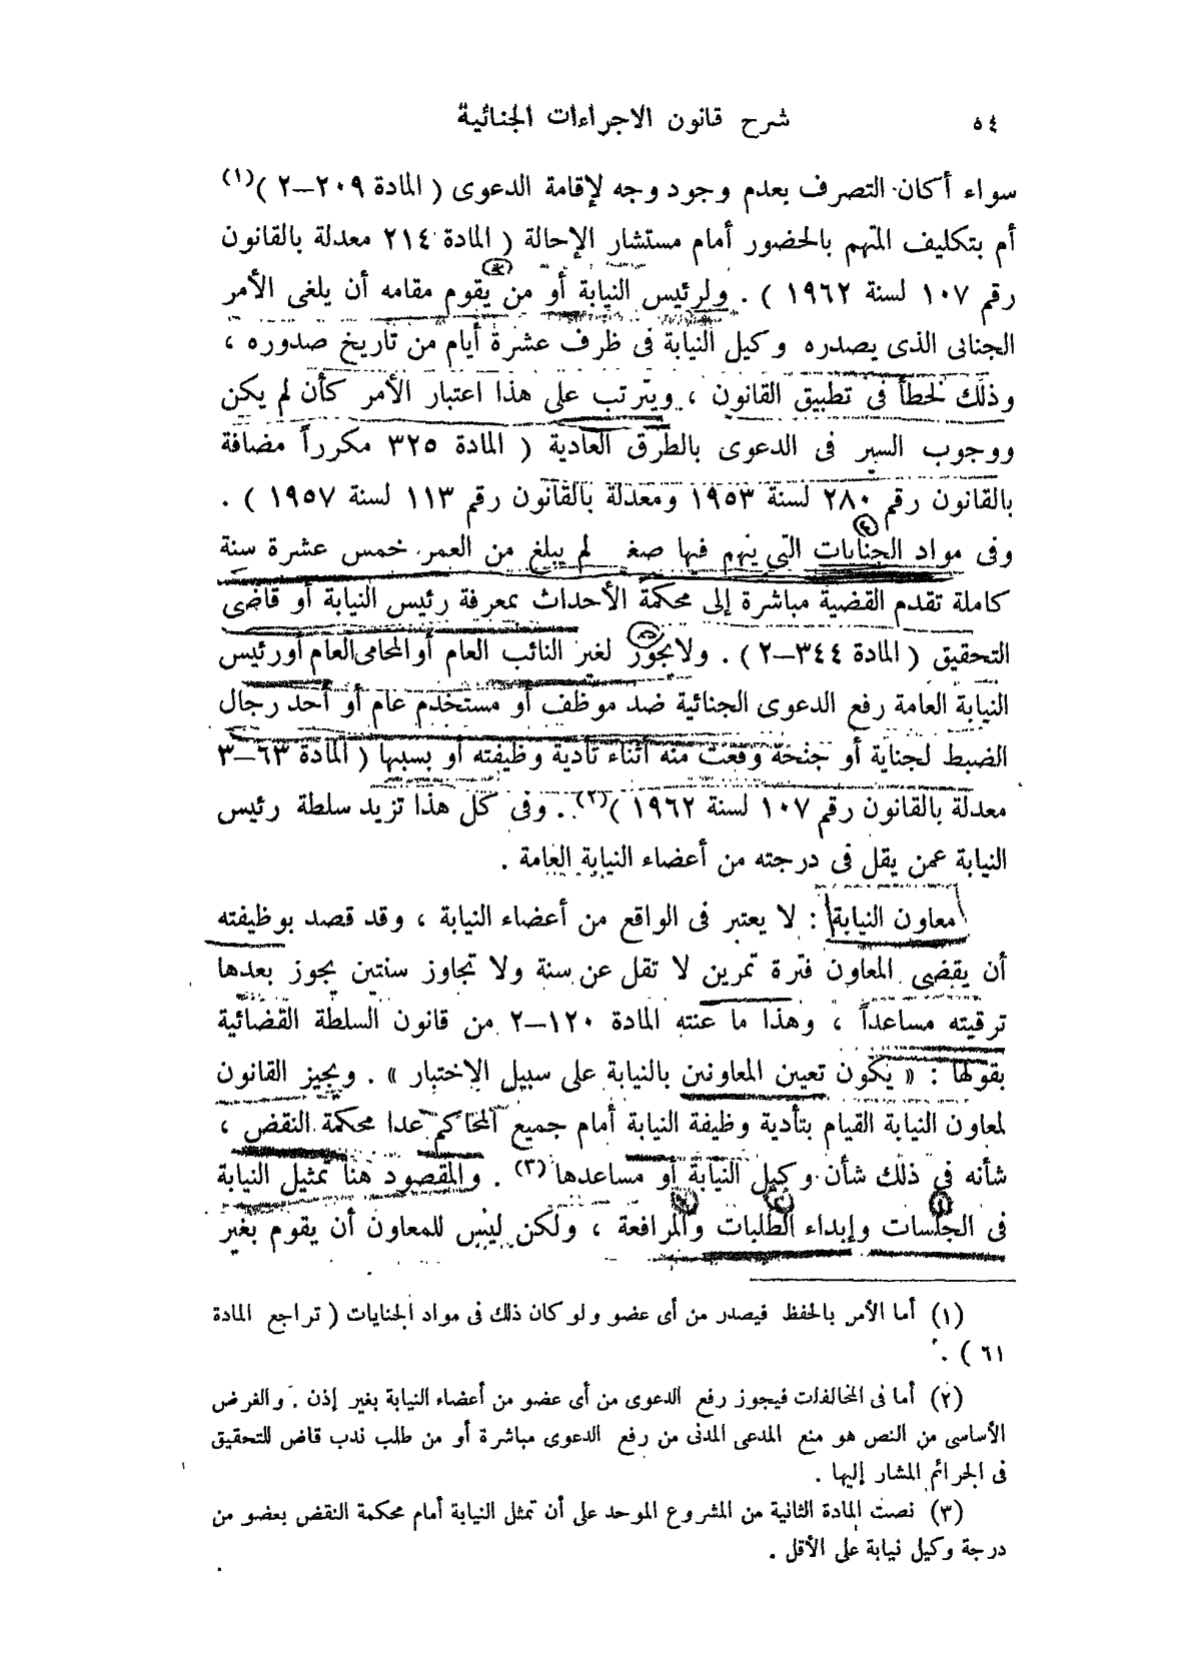 ٥٤
شرح قانون الاجراءات الجنائية
سواء أكان التصرف بعدم وجود وجه لإقامة الدعوى ( المادة ٢٠٩–٢ )(١)
أم بتكليف المتهم بالحضور أمام مستشار الإحالة ( المادة ٢١٤ معدلة بالقانون
رقم ١٠٧ لسنة ١٩٦٢ ) . ولرئيس النيابة أو من يقوم مقامه أن يلغى الأمر
الجنائى الذى يصدره وكيل النيابة فى ظرف عشرة أيام من تاريخ صدوره ،
وذلك لخطأ فى تطبيق القانون ، ويترتب على هذا اعتبار الأمر كأن لم يكن
ووجوب السير فى الدعوى بالطرق العادية ( المادة ٣٢٥ مكرراً مضافة
بالقانون رقم ٢٨٠ لسنة ١٩٥٣ ومعدلة بالقانون رقم ١١٣ لسنة ١٩٥٧ ) .
وفى مواد الجنايات التي يتهم فيها صغير لم يبلغ من العمر خمس عشرة سنة
كاملة تقدم القضية مباشرة إلى محكمة الأحداث بمعرفة رئيس النيابة أو قاضى
التحقيق ( المادة ٣٤٤–٢ ) . ولا يجوز لغير النائب العام أو المحامى العام أو رئيس
النيابة العامة رفع الدعوى الجنائية ضد موظف أو مستخدم عام أو أحد رجال
الضبط لجناية أو جنحة وقعت منه أثناء تأدية وظيفته أو بسببها ( المادة ٦٣–٣
معدلة بالقانون رقم ١٠٧ لسنة ١٩٦٢ )(٢) . وفى كل هذا تزيد سلطة رئيس
النيابة عمن يقل فى درجته من أعضاء النيابة العامة .
معاون النيابة : لا يعتبر فى الواقع من أعضاء النيابة ، وقد قصد بوظيفته
أن يقضى المعاون فترة تمرين لا تقل عن سنة ولا تجاوز سنتين يجوز بعدها
ترقيته مساعداً ، وهذا ما عنته المادة ١٢٠–٢ من قانون السلطة القضائية
بقولها : « يكون تعيين المعاونين بالنيابة على سبيل الاختبار » . ويجيز القانون
لمعاون النيابة القيام بتأدية وظيفة النيابة أمام جميع المحاكم عدا محكمة النقض ،
شأنه فى ذلك شأن وكيل النيابة أو مساعدها (٣) . والمقصود هنا تمثيل النيابة
فى الجلسات وإبداء الطلبات والمرافعة ، ولكن ليس للمعاون أن يقوم بغير
(١) أما الأمر بالحفظ فيصدر من أى عضو ولو كان ذلك فى مواد الجنايات ( تراجع المادة
٦١ ) .
(٢) أما فى المخالفات فيجوز رفع الدعوى من أى عضو من أعضاء النيابة بغير إذن . والغرض
الأساسى من النص هو منع المدعى المدنى من رفع الدعوى مباشرة أو من طلب ندب قاض للتحقيق
فى الجرائم المشار إليها .
(٣) نصت المادة الثانية من المشروع الموحد على أن تمثل النيابة أمام محكمة النقض بعضو من
درجة وكيل نيابة على الأقل .